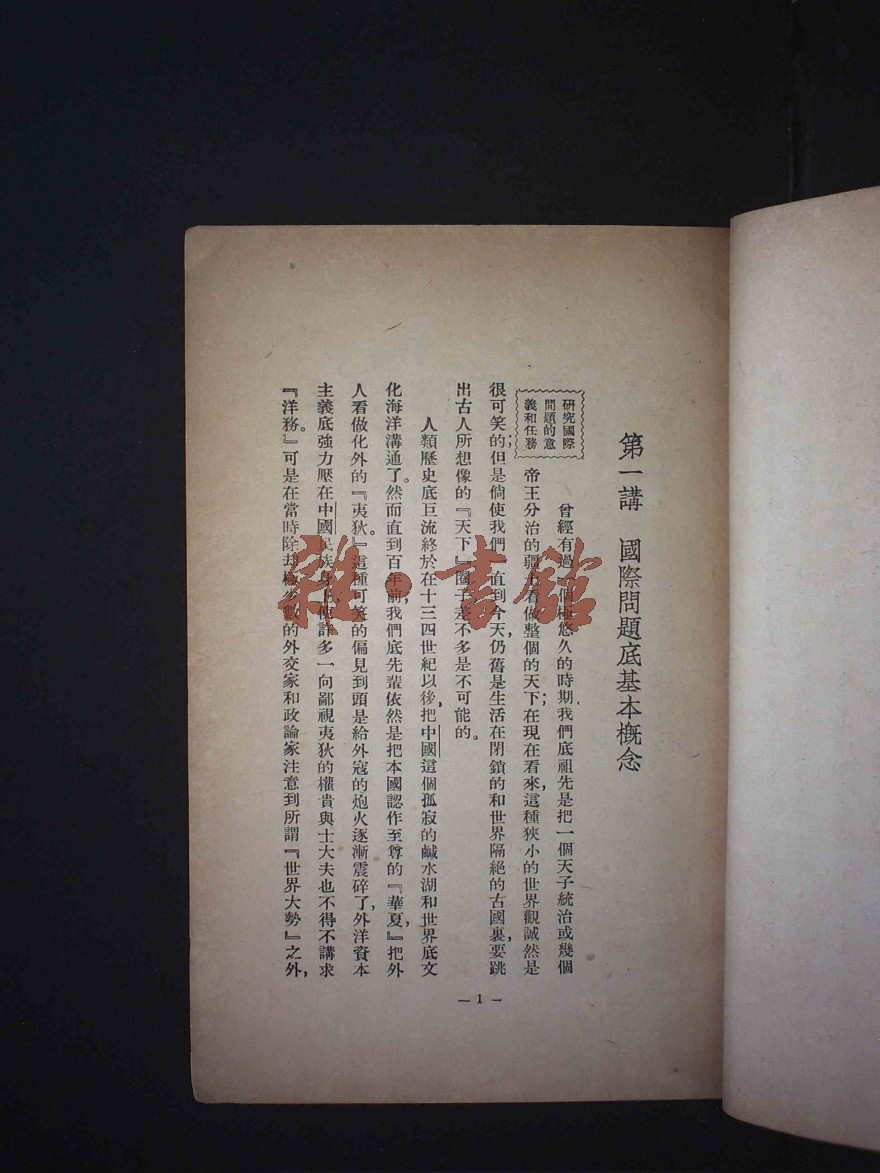 第一講　國際問題底基本概念
研究國際
問題的意
義和任務
曾經有過一個極悠久的時期、我們底祖先是把一個天子統治或幾個
帝王分治的疆土看做整個的天下；在現在看來，這種狹小的世界觀誠然是
很可笑的；但是倘使我們一直到今天，仍舊是生活在閉鎖的和世界隔絕的古國裏，要跳
出古人所想像的『天下』圈子差不多是不可能的。
人類歷史底巨流終於在十三四世紀以後，把中國這個孤寂的鹹水湖和世界底文
化海洋溝通了。然而直到百年前，我們底先輩依然是把本國認作至尊的『華夏，』把外
人看做化外的『夷狄。』這種可笑的偏見到頭是給外寇的炮火逐漸震碎了，外洋資本
主義底強力壓在中國民族身上，使許多一向鄙視夷狄的權貴與士大夫也不得不講求
『洋務。』可是在當時除却極少數的外交家和政論家注意到所謂『世界大勢』之外，
— 1 —
雜·書館